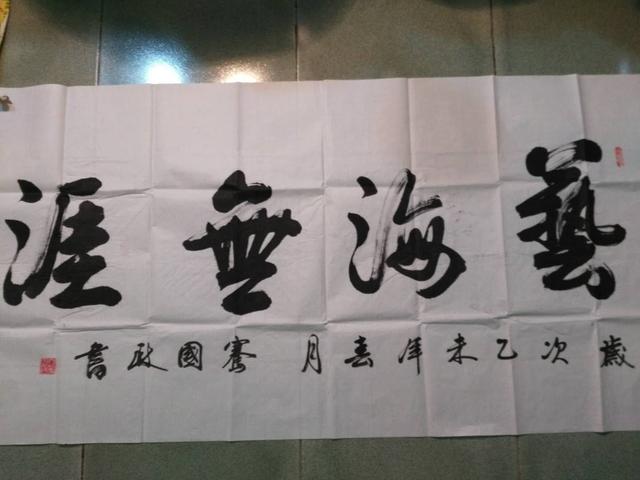 藝海無涯
歲次乙未年春月骞國政書